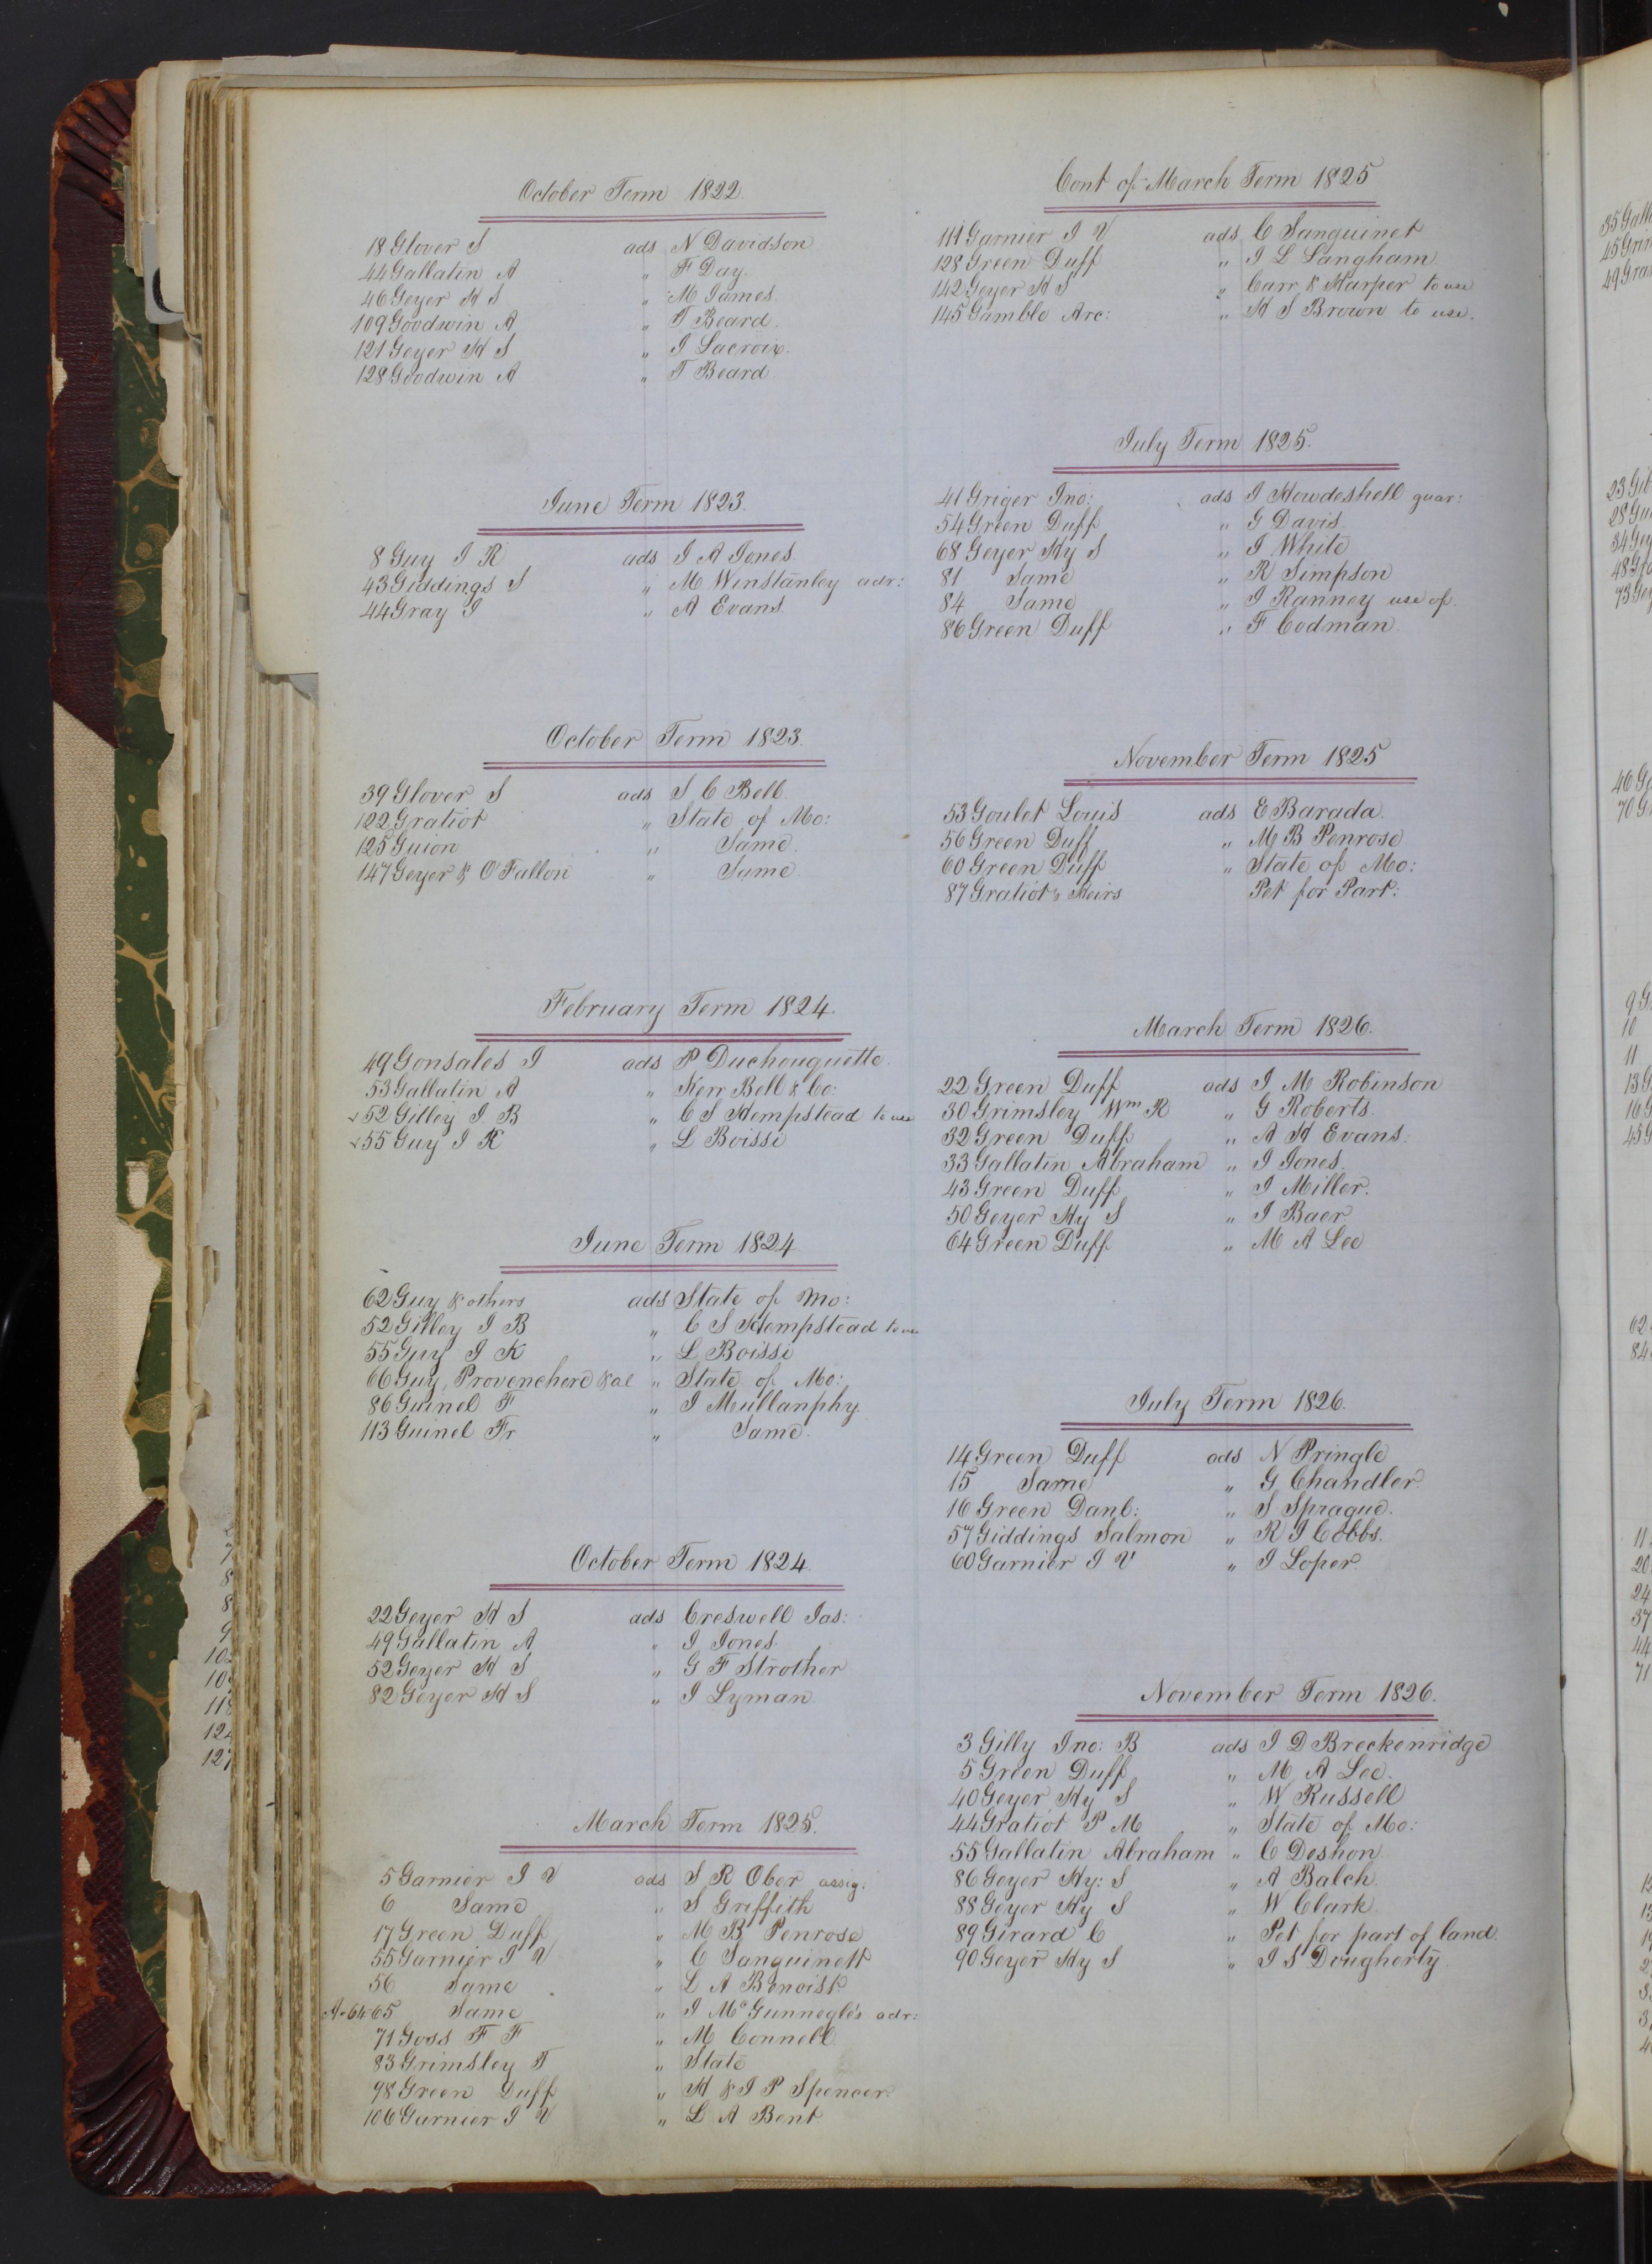 October Term 1822.
18 Glover S ads N Davidson
44 Gallatin A " F Day.
46 Geyer H S " M James
109 Goodwin A " T Beard.
121 Geyer H S " J Lacroix.
128 Goodwin A " T Beard
June Term 1823.
8 Guy J R ads J A Jones
43 Giddings S " M Winstanley adr:
44 Gray J " A Evans.
October Term 1823.
39 Glover S ads S C Bell.
122 Gratiot " State of Mo:
125 Guion " Same.
147 Geyer & O'Fallon " Same.
February Term 1824.
49 Gonsales J ads P Duchouquette.
53 Gallatin A " Kerr Bell & Co:
52 Gilley J B " C S Hempstead to use
55 Guy J K " L Boissi
June Term 1824
62 Guy & others ads State of Mo:
52 Gilley J B " C S Hempstead to use
55 Guy J K " L Boissi
66 Guy, Provenchere & al " State of Mo:
86 Guinel F " J Mullanphy.
113 Guinel Fr. " Same.
October Term 1824.
22 Geyer H S ads Creswell Jas:
49 Gallatin A " J Jones.
52 Geyer H S " G F Strother
82 Geyer H S " J Lyman.
March Term 1825.
5 Garnier J V ads S R Ober assig.
6 Same " S Griffith
17 Green Duff " M B Penrose
55 Garnier J V " C Sanguinett
56 Same " L A Benoist
A-64 65 Same " J McGunnegle's adr:
71 Goss F F " M Connell
83 Grimsley T " State
98 Green Duff " H & J P Spencer.
106 Garnier J V " L A Bent
Cont of March Term 1825
111 Garnier J V ads C Sanguinet
128 Green Duff " J L Langham
142 Geyer H S " Carr & Harper to use
145 Gamble Arc: " H S Brown to use.
July Term 1825.
41 Griger Jno: ads J Howdeshell guar:
54 Green Duff " G Davis.
68 Geyer Hy S " J White
81 Same " R Simpson
84 Same " J Ranney use of.
86 Green Duff " F Codman.
November Term 1825
53 Goulet Louis ads E Barada.
56 Green Duff " M B Penrose
60 Green Duff " State of Mo:
87 Gratiot's Heirs Pet for Part:
March Term 1826.
22 Green Duff ads J M Robinson
30 Grimsley Wm R " G Roberts.
32 Green Duff " A H Evans.
33 Gallatin Abraham " J Jones.
43 Green Duff " J Miller.
50 Geyer Hy S " J Baer
64 Green Duff " M A Lee
July Term 1826.
14 Green Duff ads N Pringle
15 Same " G Chandler.
16 Green Danl: " S Sprague.
57 Giddings Salmon " R J Cobbs.
60 Garnier J V " J Loper.
November Term 1826.
3 Gilly Jno: B ads J D Breckenridge
5 Green Duff " M A Lee.
40 Geyer Hy S " W Russell
44 Gratiot P M " State of Mo:
55 Gallatin Abraham " C Deshon.
86 Geyer Hy: S " A Balch.
88 Geyer Hy S " W Clark.
89 Girard C " Pet for part of land.
90 Geyer Hy S " J S Dougherty.